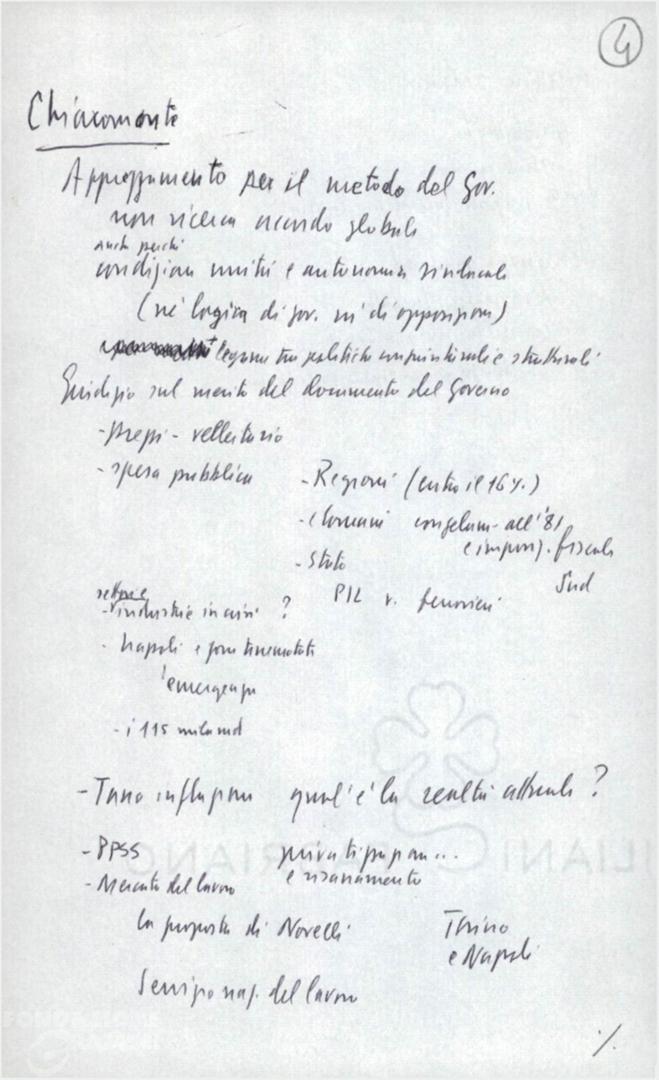 4
Chiaromonte
Apprezzamento per il metodo del Gov.
non ricerca accordo globale
anche perché
condizioni unità e autonomia sindacale
(né logica di gov. né di opposizione)
legame tra politiche congiunturali e strutturali
Giudizio sul merito del documento del Governo
- prezzi - velleitario
- spesa pubblica
- Regioni (entro il 16%)
- Comuni congelam. all'81
e imposiz. fiscale
- Stato
Sud
PIL
settore
- industrie in crisi ?
- Napoli e zone terremotate
l'emergenza
- i 115 miliardi
- Tasso inflazione qual'è la realtà attuale ?
- PPSS privatizzazione...
e risanamento
- Mercato del lavoro
la proposta di Novelli Torino
e Napoli
Servizio naz. del lavoro
./.
ILIANI FABRIANO
FONDAZIONE